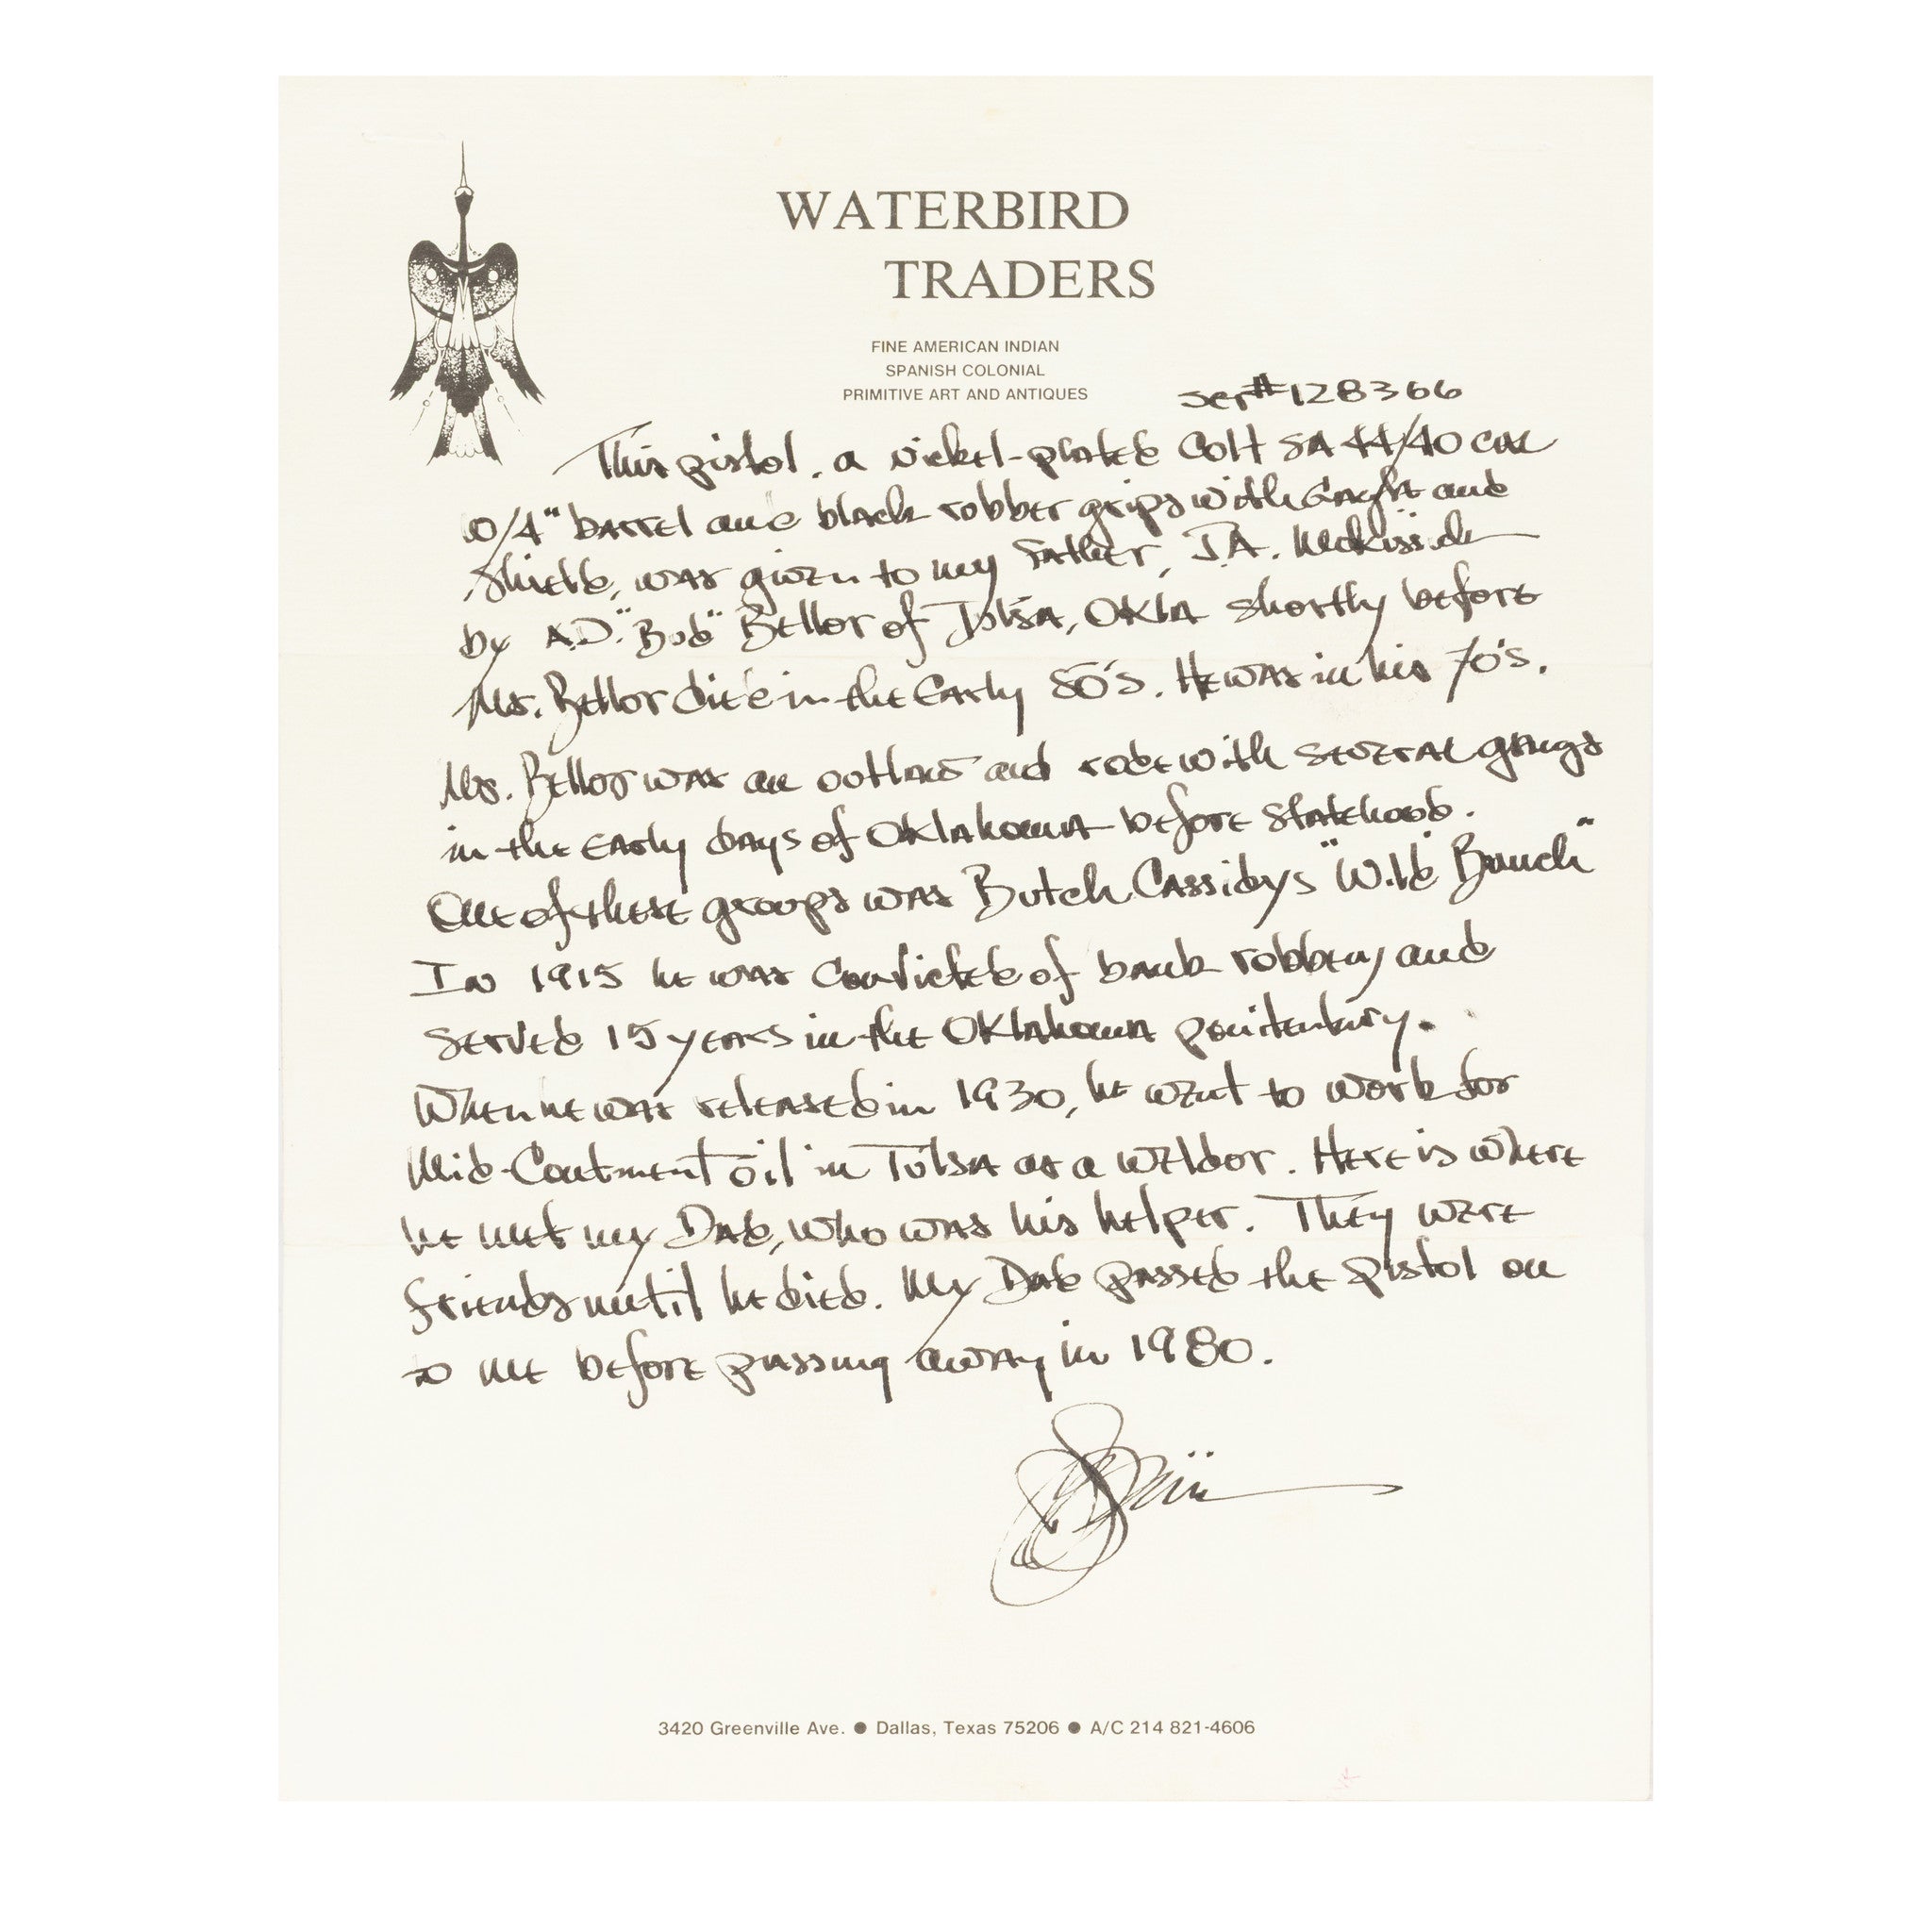 WATERBIRD
TRADERS
FINE AMERICAN INDIAN
SPANISH COLONIAL
PRIMITIVE ART AND ANTIQUES
Ser# 128366
This pistol, a nickel-plated Colt SA 44/40 cal
w/4" barrel and black rubber grips with Eagle and
Shield, was given to my father, J.A. McKissick
by A.D. "Bob" Bellor of Tulsa, Okla shortly before
Mr. Bellor died in the early 50's. He was in his 70's.
Mr. Bellor was an outlaw and rode with several gangs
in the early days of Oklahoma before statehood.
One of these groups was Butch Cassidys "Wild Bunch"
In 1915 he was convicted of bank robbery and
served 15 years in the Oklahoma penitentiary.
When he was released in 1930, he went to work for
Mid-Continent oil in Tulsa as a weldor. Here is where
he met my Dad, who was his helper. They were
friends until he died. My Dad passed the pistol on
to me before passing away in 1980.
3420 Greenville Ave. ● Dallas, Texas 75206 ● A/C 214 821-4606